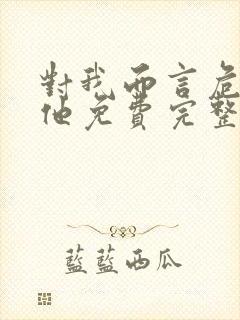 對我而言危
他免費完整
藍藍西瓜